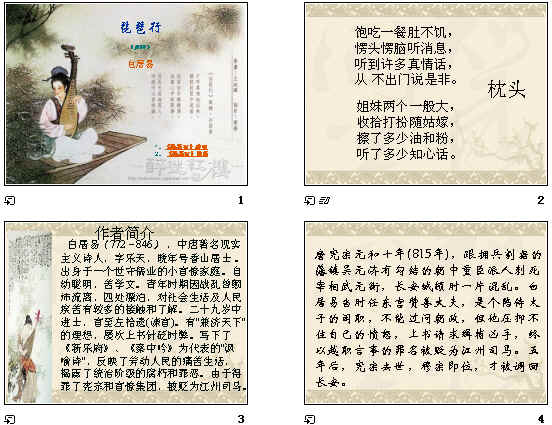 琵琶行
白居易
1
饱吃一餐肚不饥，
愣头愣脑听消息，
听到许多真情话，
从 不出门说是非。
枕头
姐妹两个一般大，
收拾打扮随姑嫁，
擦了多少油和粉，
听了多少知心话。
2
作者简介
白居易（772－846），中唐著名现实
主义诗人，字乐天，晚年号香山居士。
出身于一个世守儒业的小官僚家庭。自
幼聪明，苦学文。青年时期因战乱曾颠
沛流离，四处漂泊，对社会生活及人民
疾苦有较多的接触和了解。二十九岁中
进士，官至左拾遗(谏官)。有"兼济天下"
的理想，屡次上书针砭时弊。写下了
《新乐府》、《秦中吟》为代表的"讽
喻诗"，反映了劳动人民的痛苦生活，
揭露了统治阶级的腐朽和罪恶。由于得
罪了宪宗和官僚集团，被贬为江州司马。
3
唐宪宗元和十年(815年)，跟拥兵割据的
藩镇吴元济有勾结的朝中重臣派人刺死
宰相武元衡，长安城顿时一片混乱。白
居易当时任东宫赞善大夫，是个陪侍太
子的闲职，不能过问朝政，但他压抑不
住自己的愤怒，上书请求缉捕凶手，终
以越职言事的罪名被贬为江州司马。五
年后，宪宗去世，穆宗即位，才被调回
长安。
4